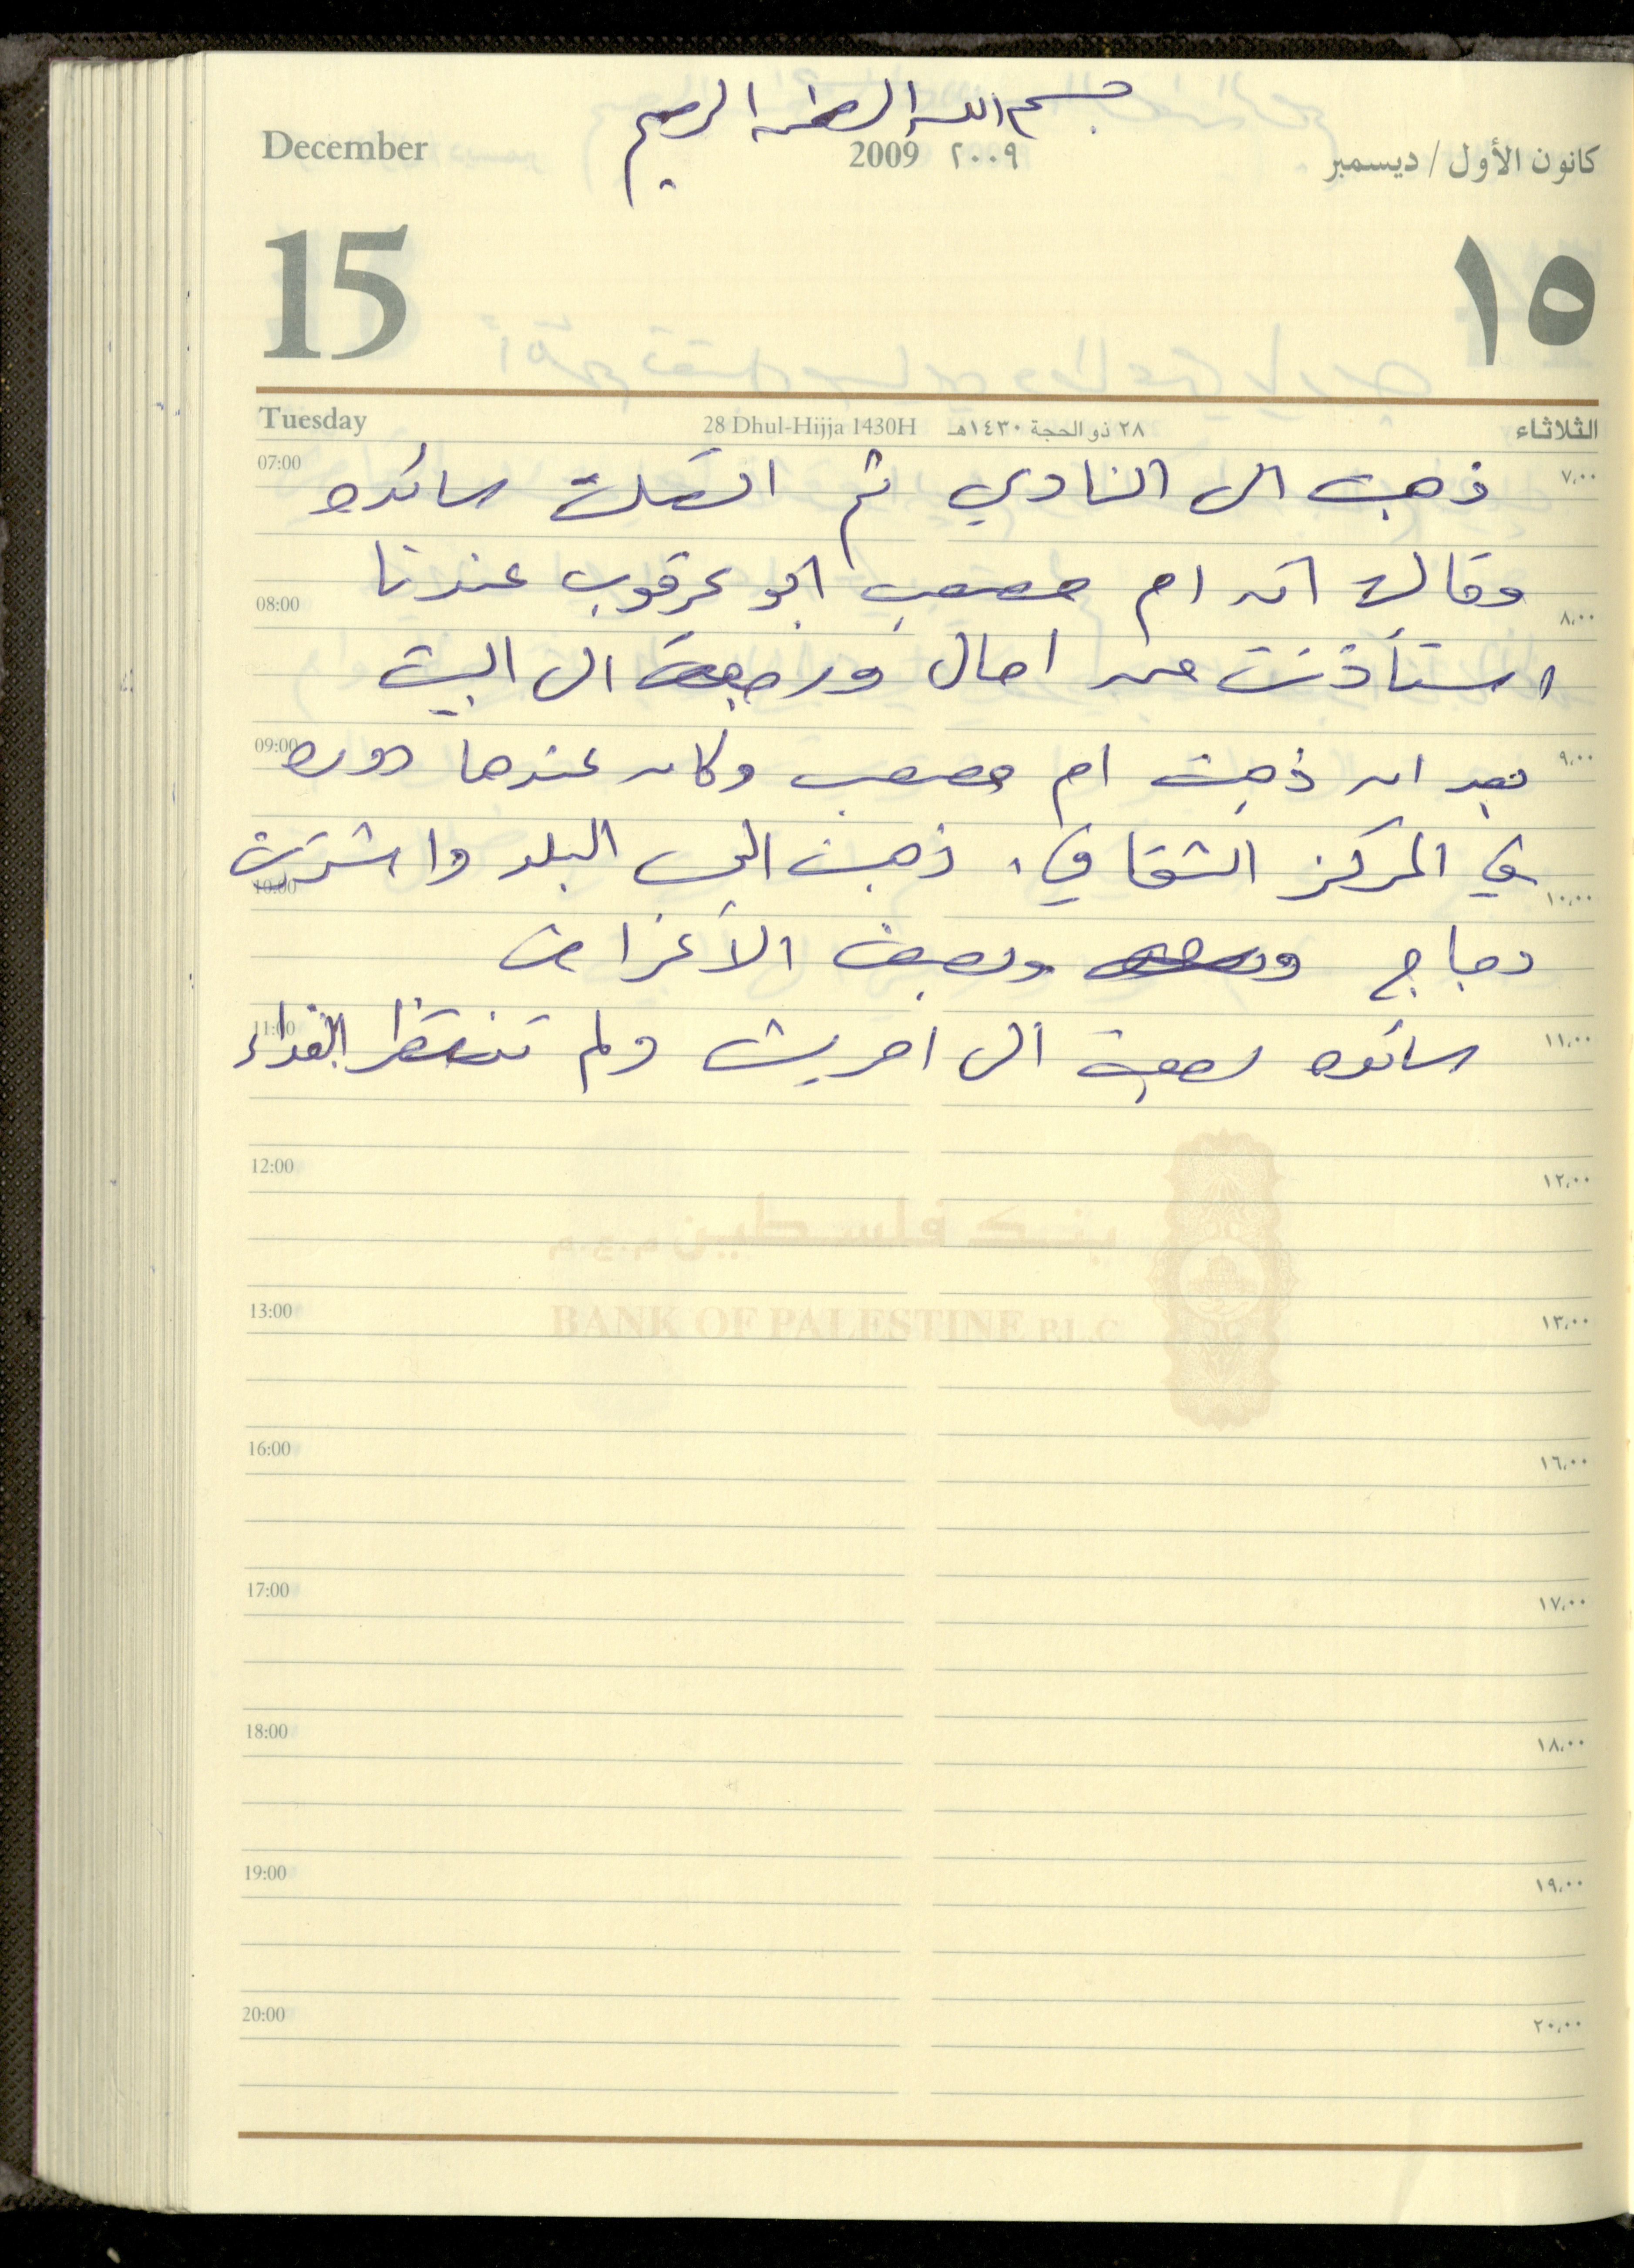 بسم الله الرحمن الرحيم
December 2009 ٢٠٠٩ كانون الأول / ديسمبر
15 ١٥
Tuesday 28 Dhul-Hijja 1430H ٢٨ ذو الحجة ١٤٣٠هـ الثلاثاء
07:00 ذهبت الى النادي ثم اتصلت سائده ٧,٠٠
وقالت ان ام مصعب ابو عرقوب عندنا
08:00 ٨,٠٠
استأذنت من امال ورجعت الى البيت
09:00 بعد ان ذهبت ام مصعب وكان عندها دوره ٩,٠٠
في المركز الثقافي، ذهبت الى البلد واشتريت
10:00 ١٠,٠٠
دجاج وبعض الأغراض
11:00 سائده رجعت الى امريش ولم تنتظر الغداء ١١,٠٠
12:00 ١٢,٠٠
بنك فلسطين م.ع.م
13:00 BANK OF PALESTINE P.L.C ١٣,٠٠
16:00 ١٦,٠٠
17:00 ١٧,٠٠
18:00 ١٨,٠٠
19:00 ١٩,٠٠
20:00 ٢٠,٠٠